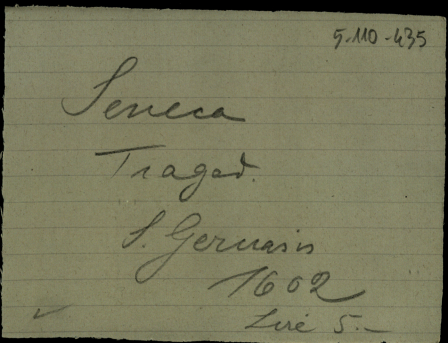 5-110-435
Seneca
Tragœd.
S. Gervasis
1602
Lire 5.-